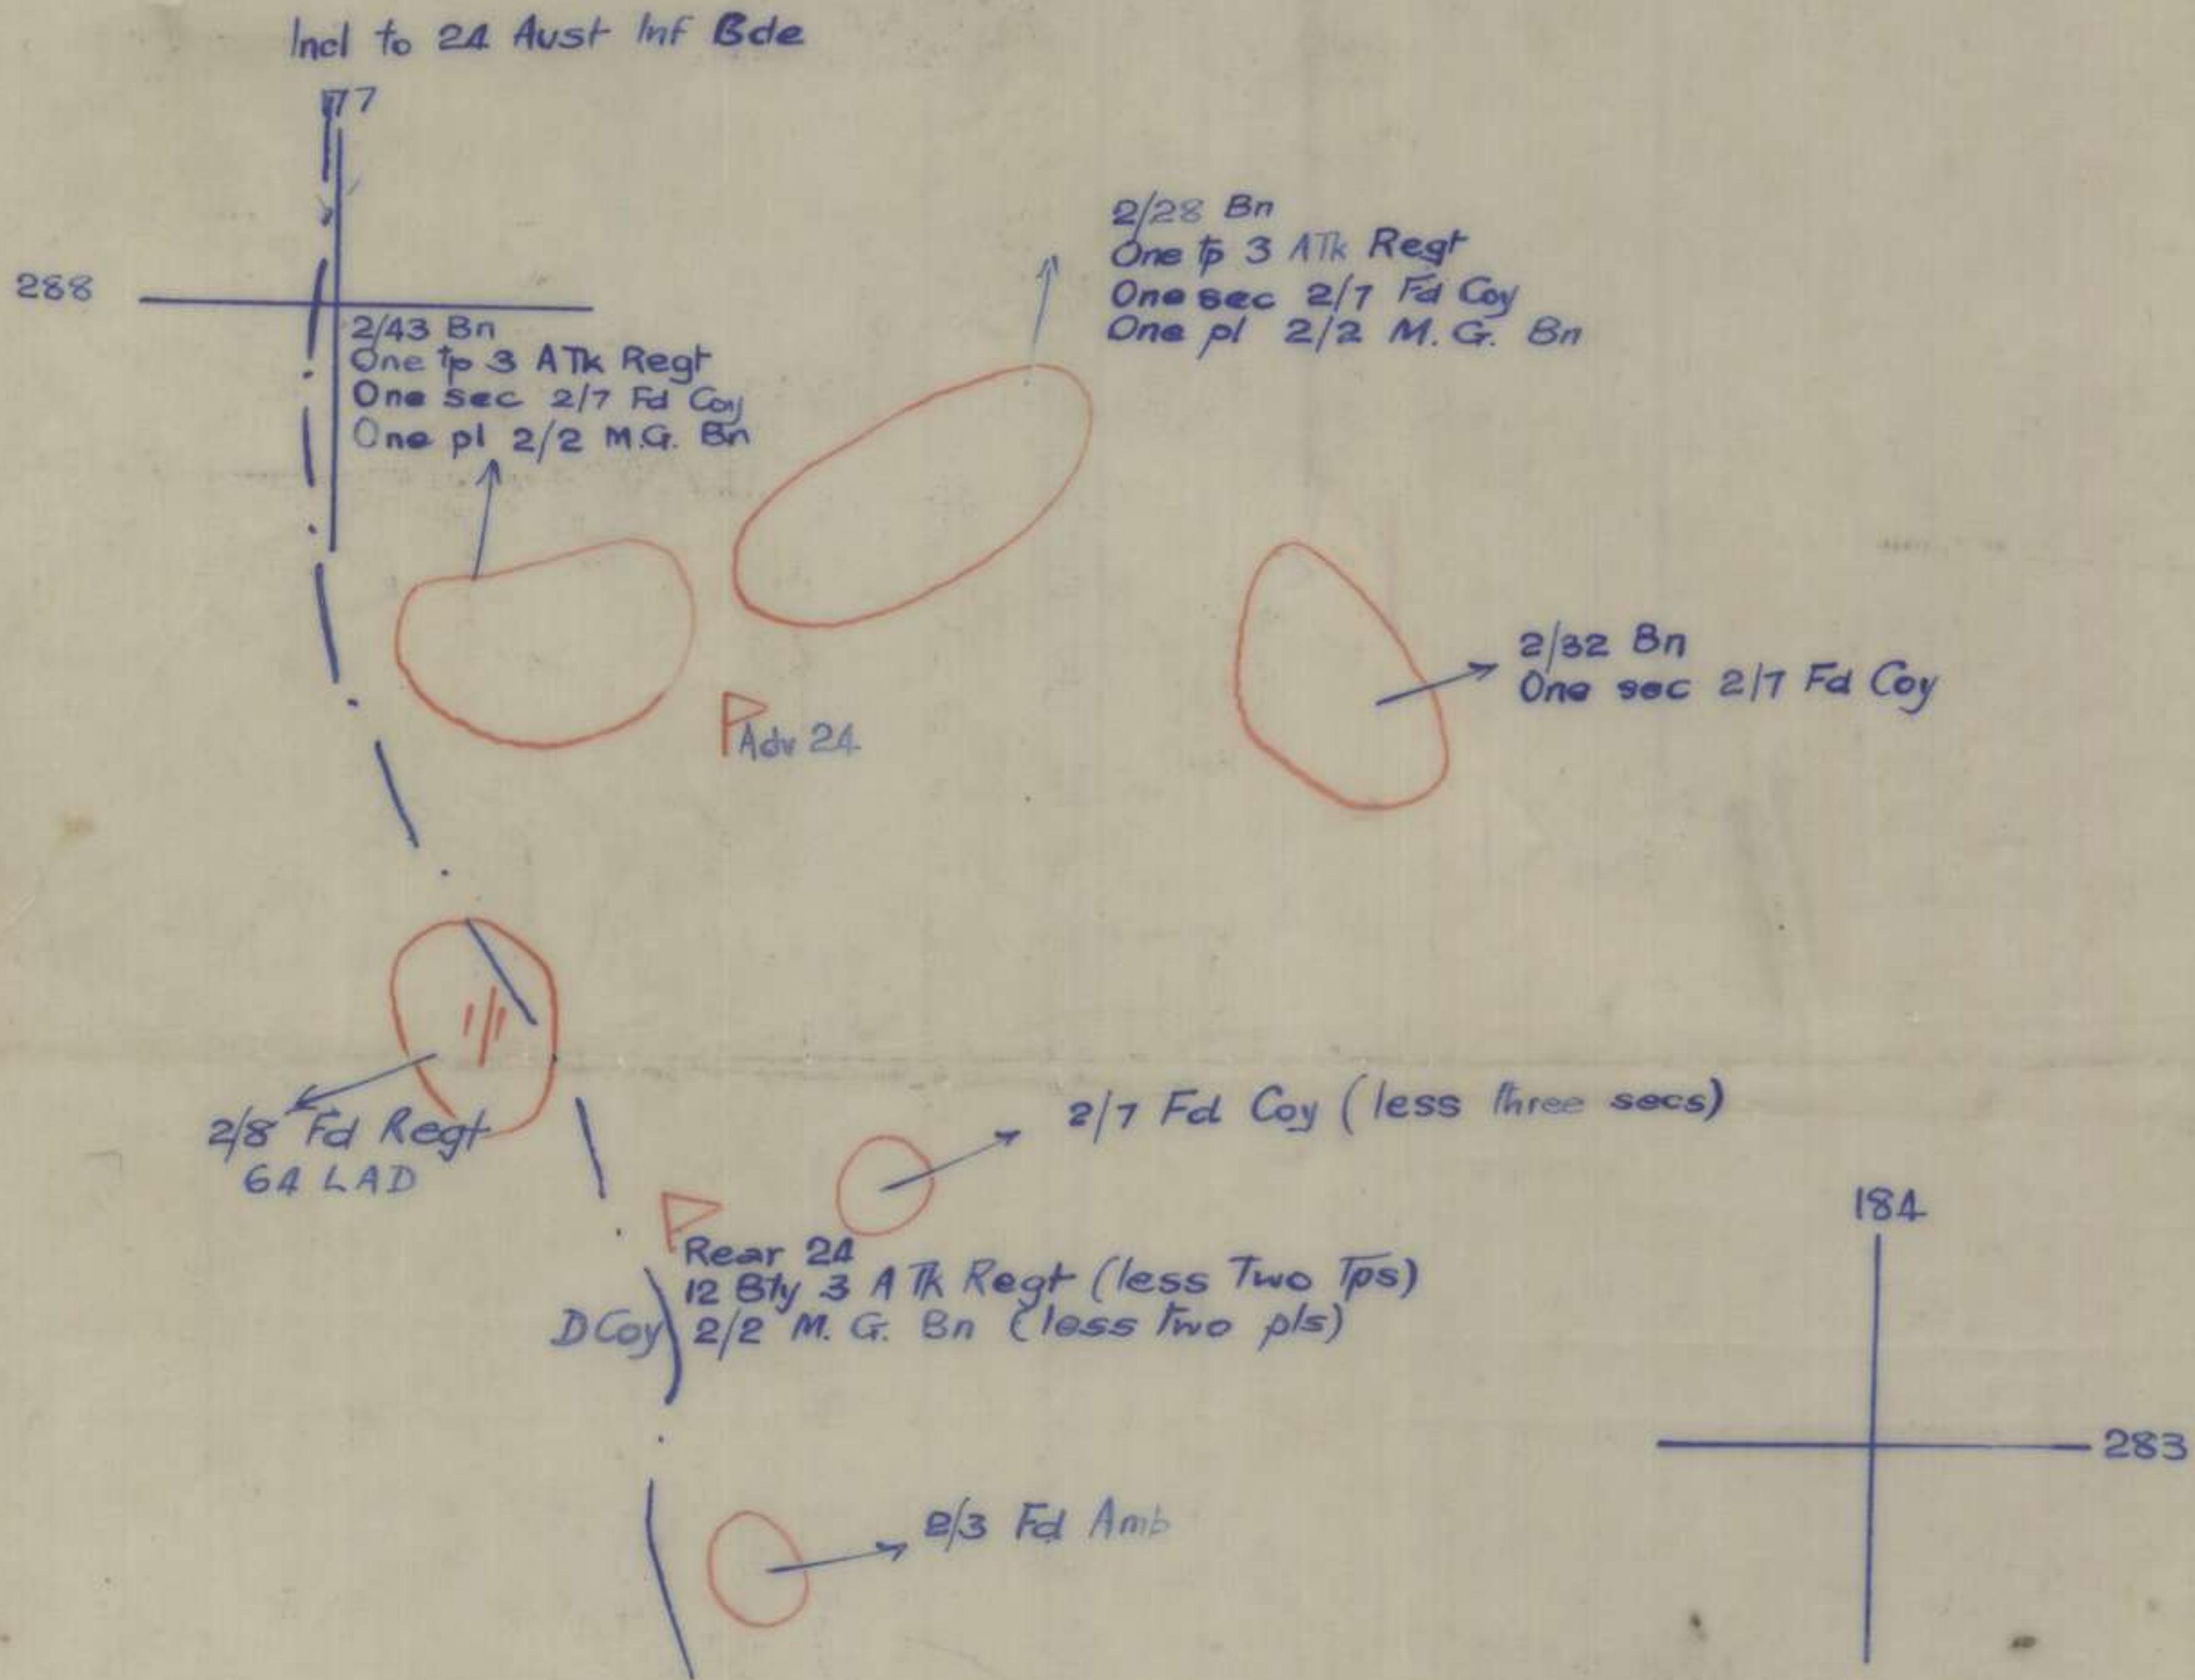 Incl to 24 Aust Inf Bde
77
288
2/43 Bn
One tp 3 ATk Regt
One sec 2/7 Fd Coy
One pl 2/2 M.G. Bn
2/28 Bn
One tp 3 ATk Regt
One sec 2/7 Fd Coy
One pl 2/2 M. G. Bn
2/32 Bn
One sec 2/7 Fd Coy
Adv 24
2/8 Fd Regt
64 LAD
2/7 Fd Coy (less three secs)
Rear 24
12 Bty 3 A Tk Regt (less Two Tps)
D Coy 2/2 M. G. Bn (less two pls)
184
283
2/3 Fd Amb